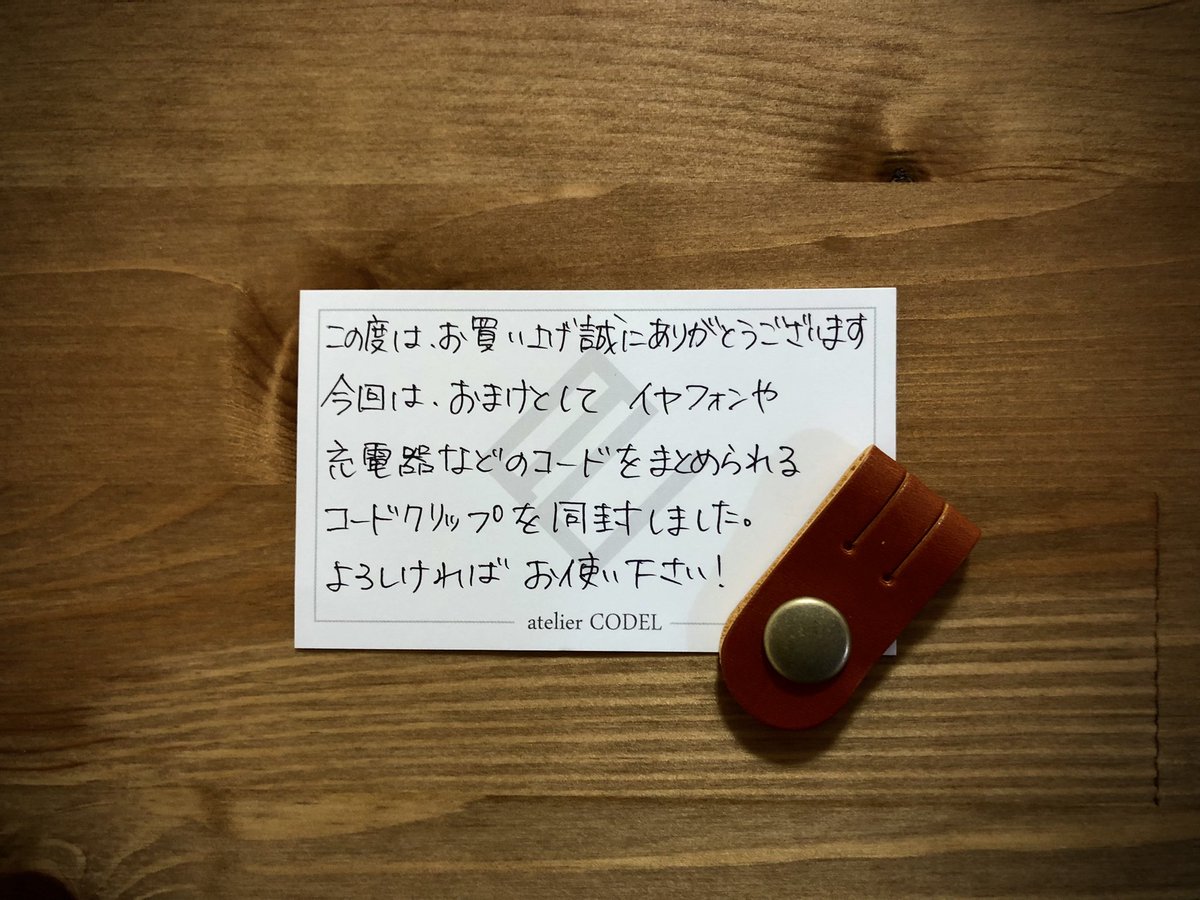 この度は、お買い上げ誠にありがとうございます
今回は、おまけとして イヤフォンや
充電器などのコードをまとめられる
コードクリップを同封しました。
よろしければ お使い下さい!
atelier CODEL